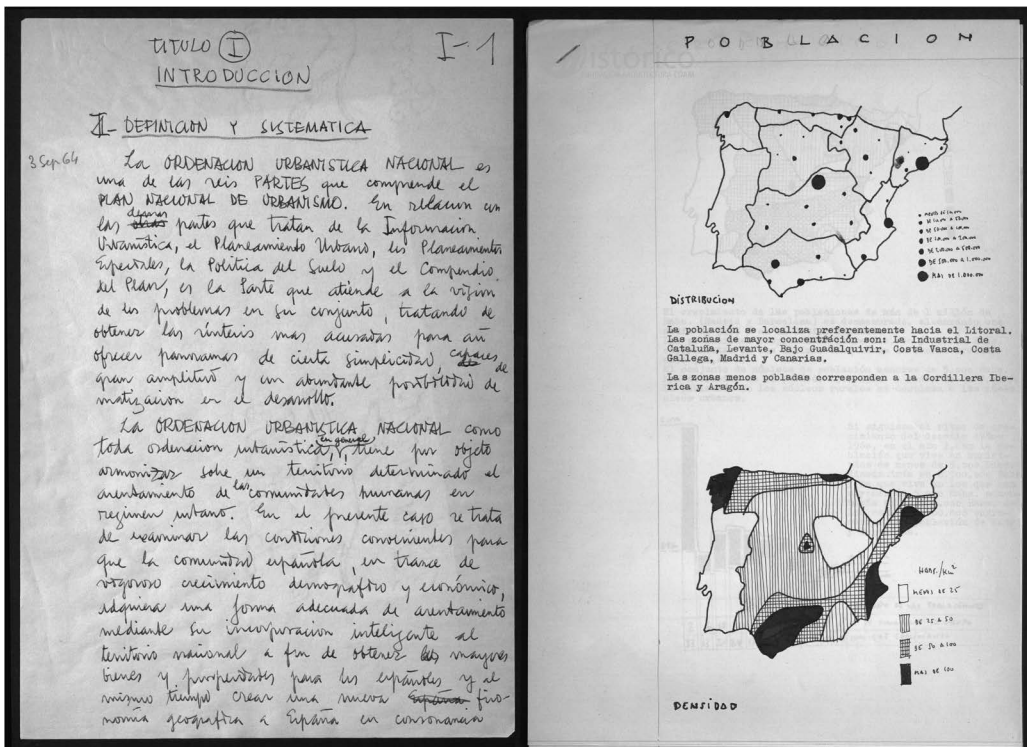 TITULO I
I-1
INTRODUCCION
I- DEFINICION Y SISTEMATICA
3 Sep 64
La ORDENACION URBANISTICA NACIONAL es
una de las seis PARTES que comprende el
PLAN NACIONAL DE URBANISMO. En relacion con
las demas partes que tratan de la Informacion
Urbanistica, el Planeamiento Urbano, los Planeamientos
Especiales, la Politica del Suelo y el Compendio
del Plan, es la Parte que atiende a la vision
de los problemas en su conjunto, tratando de
obtener las sintesis mas acusadas para asi
ofrecer panoramas de cierta simplicidad, capaces de
gran amplitud y con abundante posibilidad de
matizacion en el desarrollo.
La ORDENACION URBANISTICA NACIONAL como
toda ordenacion urbanistica, en general, tiene por objeto
armonizar sobre un territorio determinado el
asentamiento de las comunidades humanas en
regimen urbano. En el presente caso se trata
de examinar las condiciones convenientes para
que la comunidad española, en trance de
vigoroso crecimiento demografico y económico,
adquiera una forma adecuada de asentamiento
mediante su incorporacion inteligente al
territorio nacional a fin de obtener los mayores
bienes y prosperidades para los españoles y al
mismo tiempo crear una nueva fiso-
nomía geografica a España en consonancia
POBLACION
MENOS DE
DE 500.000 A 1.000.000
MAS DE 1.000.000
DISTRIBUCION
La población se localiza preferentemente hacia el Litoral.
Las zonas de mayor concentración son: La Industrial de
Cataluña, Levante, Bajo Guadalquivir, Costa Vasca, Costa
Gallega, Madrid y Canarias.
Las zonas menos pobladas corresponden a la Cordillera Ibe-
rica y Aragón.
HABS./KM²
MENOS DE 25
DE 25 A 50
DE 50 A 100
MAS DE 100
DENSIDAD